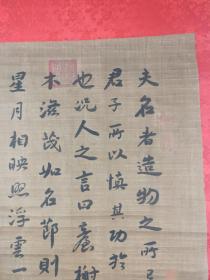 夫名者造物之所
君子所以慎其功於
也况人之言曰
木滋茂如名節則
星月相映照浮雲一